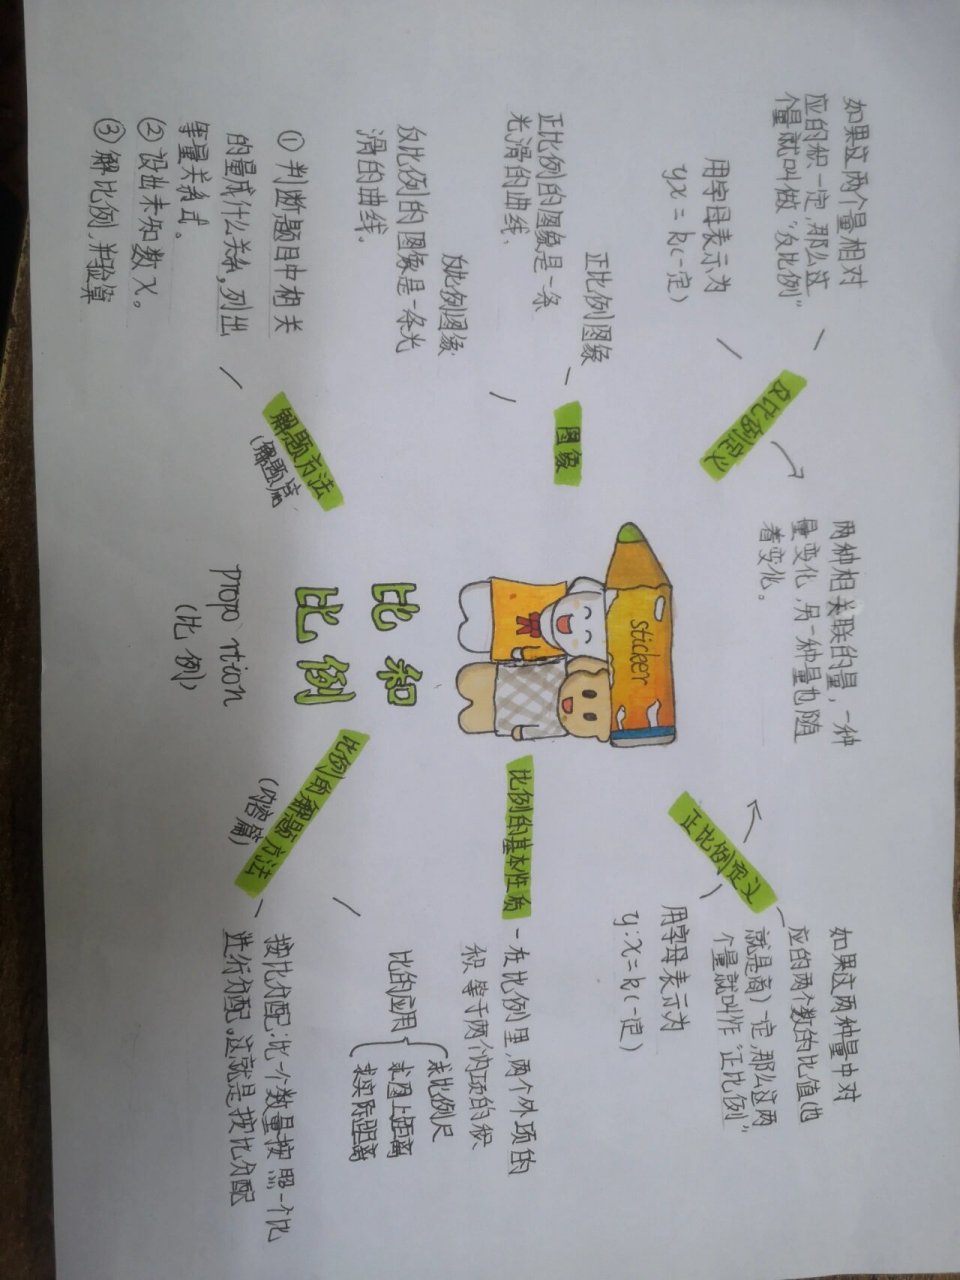 两种相关联的量,一种
量变化,另一种量也随
着变化。
反比例定义
如果这两个量相对
应的积一定,那么这
个量就叫做“反比例”
用字母表示为
yx=k(一定)
正比例定义
如果这两种量中对
应的两个数的比值(也
就是商)一定,那么这两
个量就叫作“正比例”
用字母表示为
y:x=k(一定)
图象
正比例图象
正比例的图象是一条
光滑的曲线、
反比例图象
反比例的图象是一条光
滑的曲线。
sticker
比例的基本性质
在比例里,两个外项的
积等于两个内项的积
比和
比例
proportion
(比例)
解题方法
(解题篇)
① 判断题目中相关
的量成什么关系,列出
等量关系式。
② 设出未知数x。
③ 解比例,并验算
比例的解题方法
(内容篇)
比的应用
求比例尺
求图上距离
求实际距离
按比分配:比一个数量按照一个比
进行分配,这就是按比分配